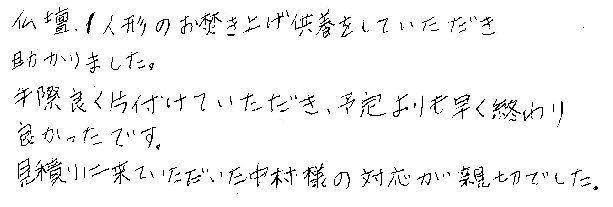 仏壇、人形のお焚き上げ供養をしていただき
助かりました。
手際良く片付けていただき、予定よりも早く終わり
良かったです。
見積りに来ていただいた中村様の対応が親切でした。